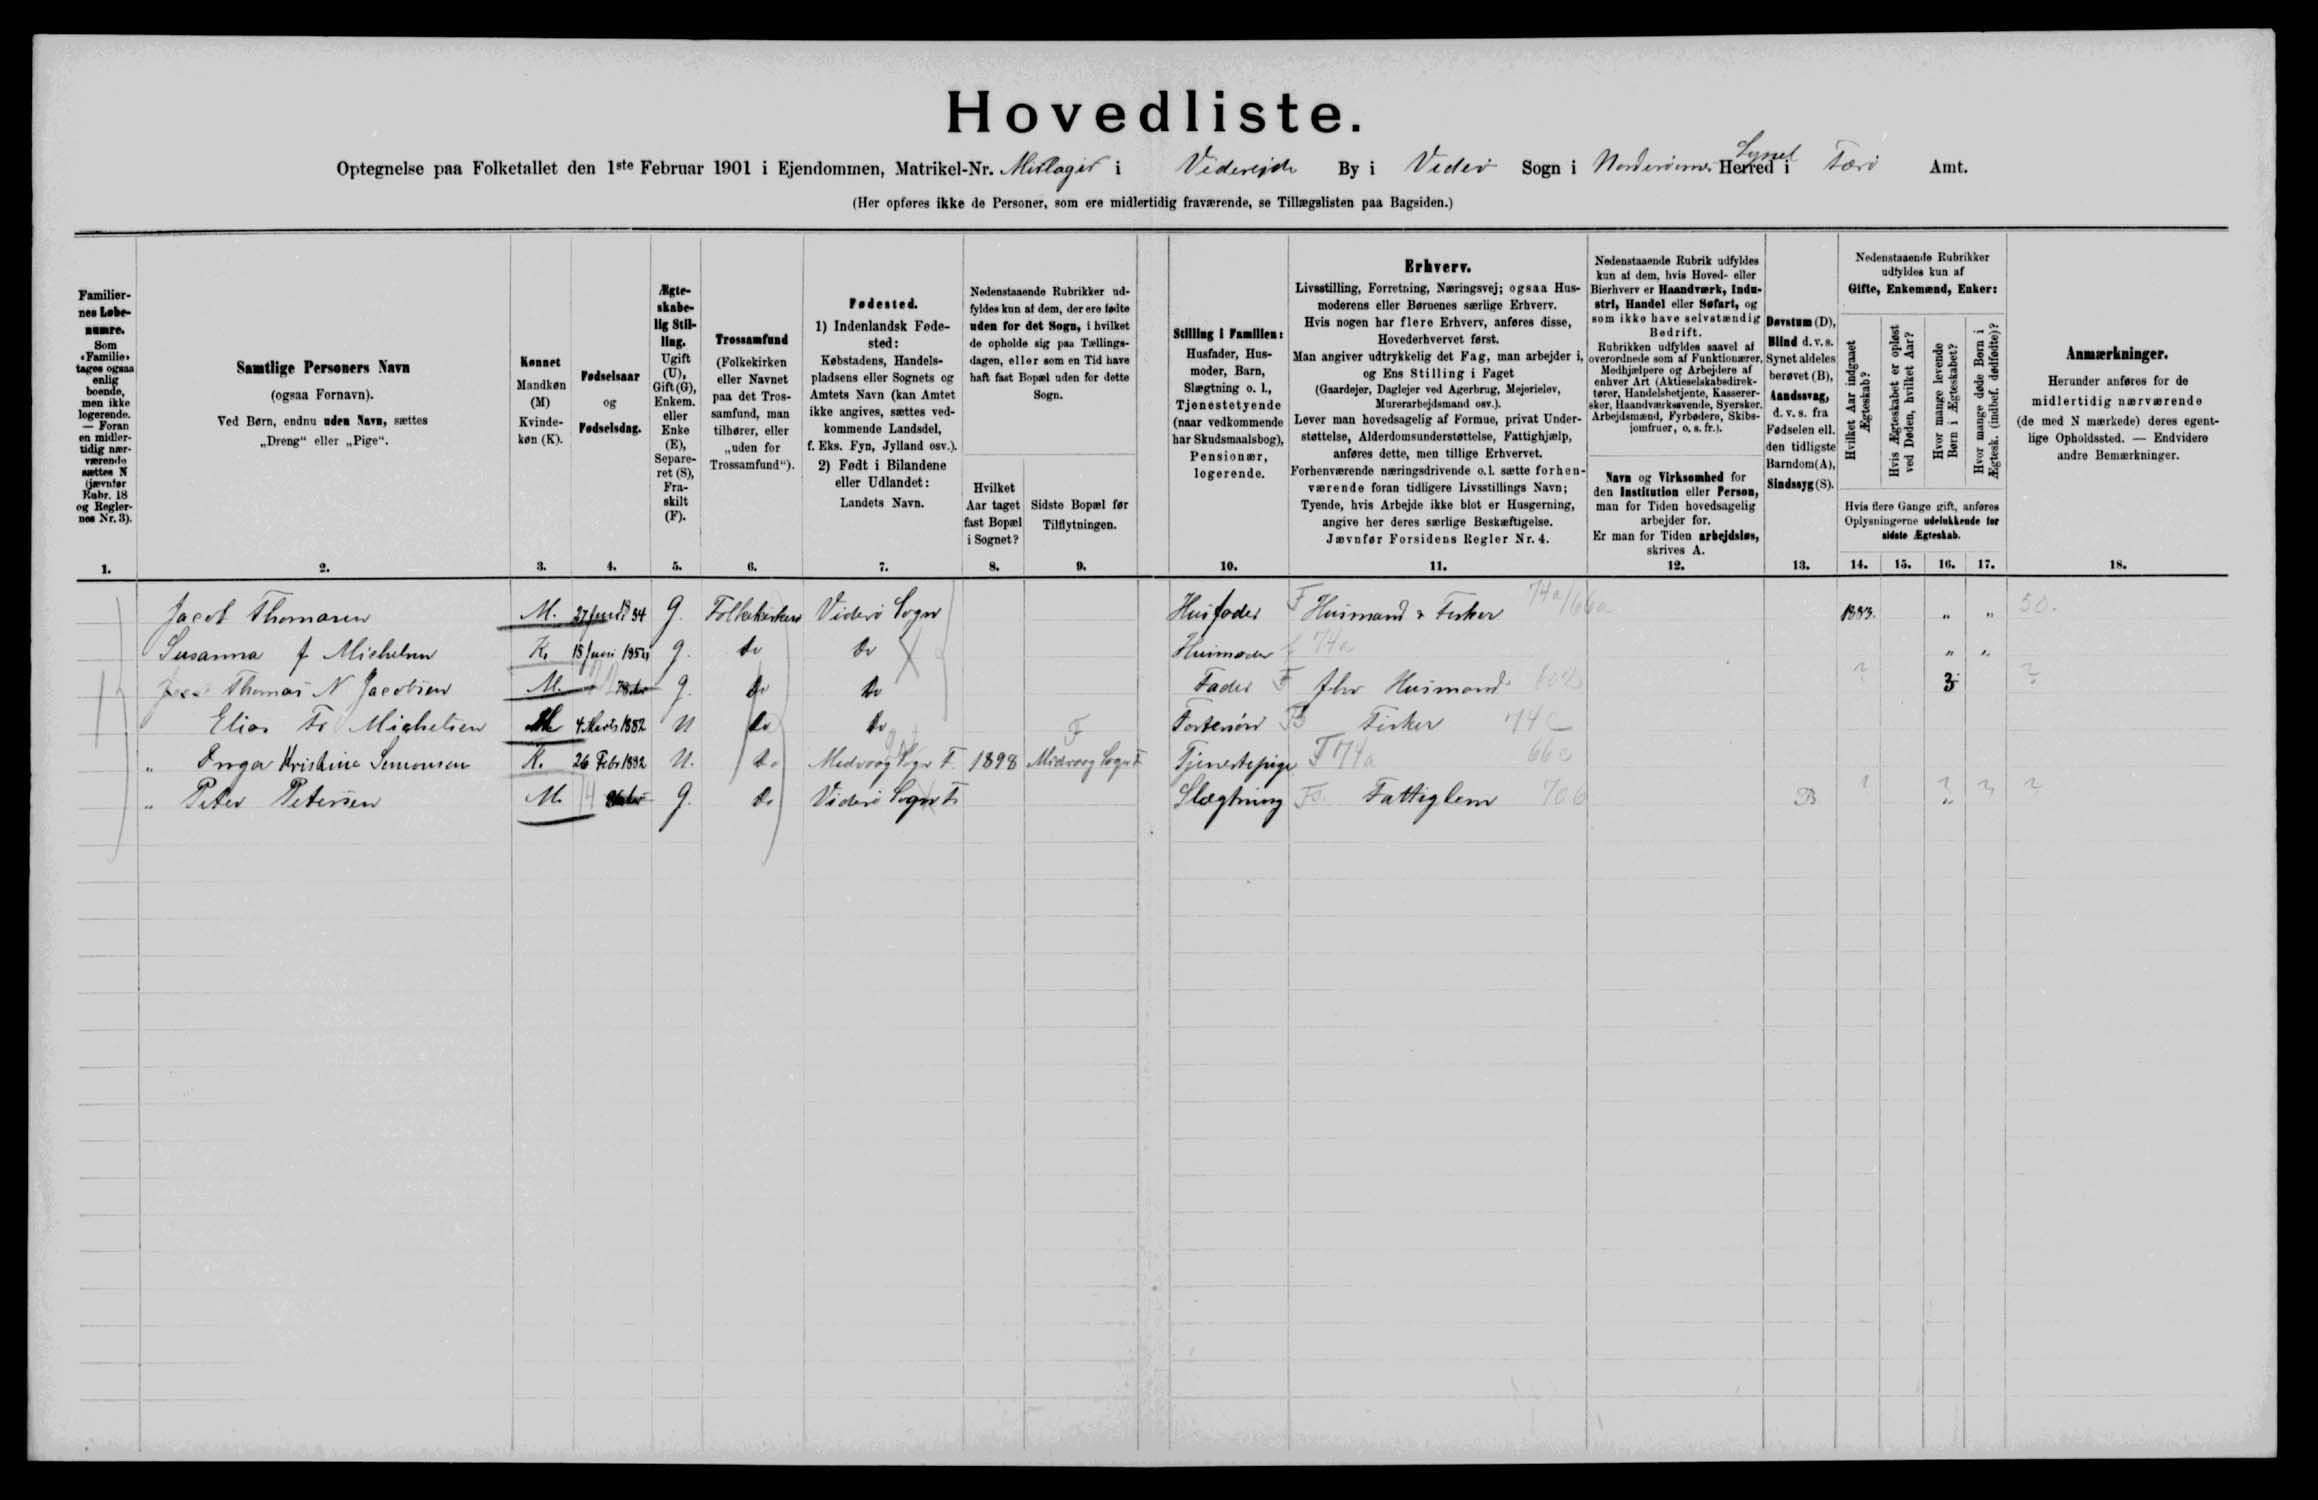 Hovedliste.
Optegnelse paa Folketallet den 1ste Februar 1901 i Ejendommen, Matrikel-Nr. i Viderejde By i Viderö Sogn i Norderöernes Herred Syssel i Færö Amt.
(Her opføres ikke de Personer, som ere midlertidig fraværende, se Tillægslisten paa Bagsiden.)
Familier-
nes Løbe-
numre.
Som
«Familie»
tages ogsaa
enlig
boende,
men ikke
logerende.
— Foran
en midler-
tidig nær-
værende
sættes N
(jævnfør
Rubr. 18
og Regler-
nes Nr. 3).
1.
Samtlige Personers Navn
(ogsaa Fornavn).
Ved Børn, endnu uden Navn, sættes
„Dreng“ eller „Pige“.
2.
Kønnet
Mandkøn
(M)
Kvinde-
køn (K).
3.
Fødselsaar
og
Fødselsdag.
4.
Ægte-
skabe-
lig Stil-
ling.
Ugift
(U),
Gift (G),
Enkem.
eller
Enke
(E),
Separe-
ret (S),
Fra-
skilt
(F).
5.
Trossamfund
(Folkekirken
eller Navnet
paa det Tros-
samfund, man
tilhører, eller
„uden for
Trossamfund“).
6.
Fødested.
1) Indenlandsk Føde-
sted:
Købstadens, Handels-
pladsens eller Sognets og
Amtets Navn (kan Amtet
ikke angives, sættes ved-
kommende Landsdel,
f. Eks. Fyn, Jylland osv.).
2) Født i Bilandene
eller Udlandet:
Landets Navn.
7.
Nedenstaaende Rubrikker ud-
fyldes kun af dem, der ere fødte
uden for det Sogn, i hvilket
de opholde sig paa Tællings-
dagen, eller som en Tid have
haft fast Bopæl uden for dette
Sogn.
Hvilket
Aar taget
fast Bopæl
i Sognet?
8.
Sidste Bopæl før
Tilflytningen.
9.
Stilling i Familien:
Husfader, Hus-
moder, Barn,
Slægtning o. l.,
Tjenestetyende
(naar vedkommende
har Skudsmaalsbog),
Pensionær,
logerende.
10.
Erhverv.
Livsstilling, Forretning, Næringsvej; ogsaa Hus-
moderens eller Børnenes særlige Erhverv.
Hvis nogen har flere Erhverv, anføres disse,
Hovederhvervet først.
Man angiver udtrykkelig det Fag, man arbejder i,
og Ens Stilling i Faget
(Gaardejer, Daglejer ved Agerbrug, Mejerielev,
Murerarbejdsmand osv.).
Lever man hovedsagelig af Formue, privat Under-
støttelse, Alderdomsunderstøttelse, Fattighjælp,
anføres dette, men tillige Erhvervet.
Forhenværende næringsdrivende o.l. sætte forhen-
værende foran tidligere Livsstillings Navn;
Tyende, hvis Arbejde ikke blot er Husgerning,
angive her deres særlige Beskæftigelse.
Jævnfør Forsidens Regler Nr. 4.
11.
Nedenstaaende Rubrik udfyldes
kun af dem, hvis Hoved- eller
Bierhverv er Haandværk, Indu-
stri, Handel eller Søfart, og
som ikke have selvstændig
Bedrift.
Rubrikken udfyldes saavel af
overordnede som af Funktionærer,
Medhjælpere og Arbejdere af
enhver Art (Aktieselskabsdirek-
tører, Handelsbetjente, Kasserer-
sker, Haandværkssvende, Syersker,
Arbejdsmænd, Fyrbødere, Skibs-
jomfruer, o. s. fr.).
Navn og Virksomhed for
den Institution eller Person,
man for Tiden hovedsagelig
arbejder for.
Er man for Tiden arbejdsløs,
skrives A.
12.
Døvstum (D),
Blind d. v. s.
Synet aldeles
berøvet (B),
Aandssvag,
d. v. s. fra
Fødselen ell.
den tidligste
Barndom(A),
Sindssyg (S).
13.
Nedenstaaende Rubrikker
udfyldes kun af
Gifte, Enkemænd, Enker:
Hvilket Aar indgaaet
Ægteskab?
Hvis Ægteskabet er opløst
ved Døden, hvilket Aar?
Hvor mange levende
Børn i Ægteskabet?
Hvor mange døde Børn i
Ægtesk. (indbef. dødfødte)?
Hvis flere Gange gift, anføres
Oplysningerne udelukkende for
sidste Ægteskab.
14. 15. 16. 17.
Anmærkninger.
Herunder anføres for de
midlertidig nærværende
(de med N mærkede) deres egent-
lige Opholdssted. — Endvidere
andre Bemærkninger.
18.
Jacob Thomasen M. 27 Juni 54 G. Folkekirken Viderö Sogn Husfader F Husmand & Fisker 74a/66a 1883. " " 50.
Susanna J. Michelsen K. 15 Juni 1854 G. Do Do Husmoder f 74a " "
Thomas N Jacobsen M. G. Do Do Fader F fhv Husmand ? 3 ?
Elias Fr Michelsen M 4 Marts 1882 U Do Do Fostersön Fisker 74c
" Inga Kristine Simonsen K. 26 Febr 1882 U. Do Midvaag Sogn F 1898 Midvaag Sogn F Tjenestepige F 74a 66c
" Peter Petersen M. G. Do Viderö Sogn F Slægtning Fs. Fattiglem 706 B ? ? " ? ?